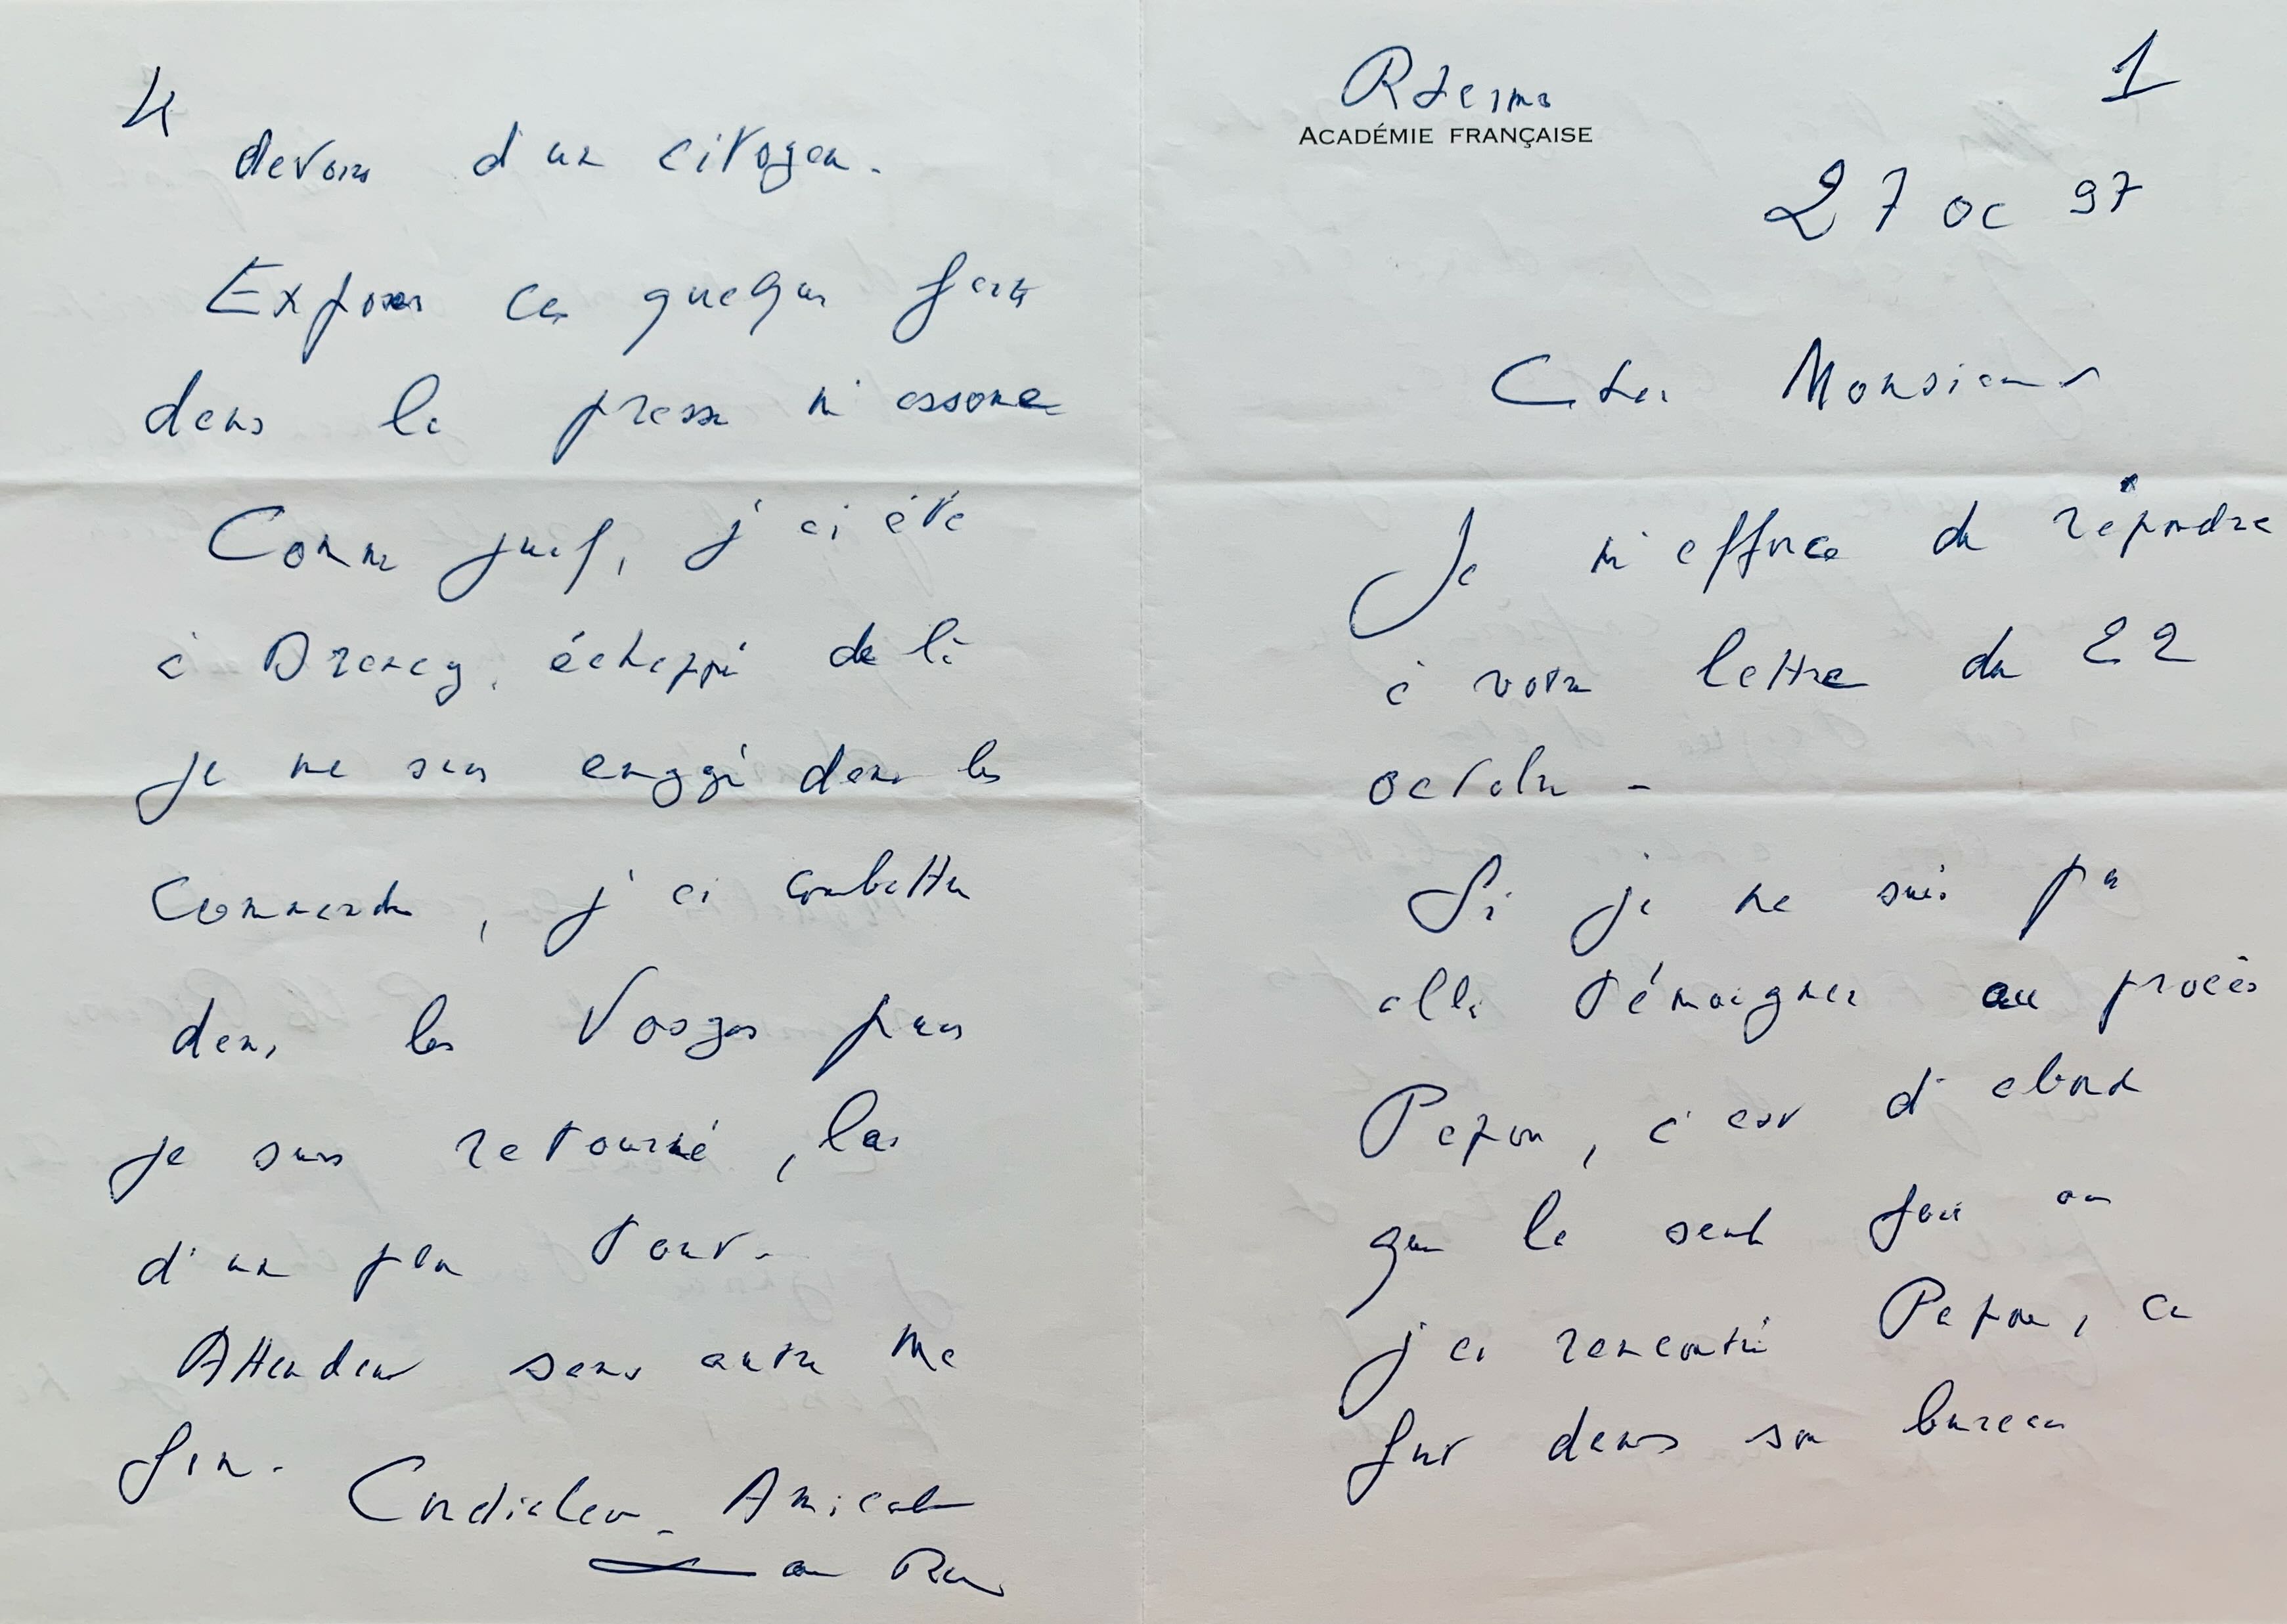 1
ACADÉMIE FRANÇAISE
27 oc 97
Cher Monsieur
Je m'efforce de répondre
à votre lettre du 22
octobre -
Si je ne suis pas
allé témoigner au procès
Papon, c'est d'abord
que la seule fois où
j'ai rencontré Papon, ce
fut dans son bureau
4
devoirs d'un citoyen.
Exposer ces quelques faits
dans la presse m'assome
Comme juif, j'ai été
à Drancy, échappé de là
je me suis engagé dans les
Commandos, j'ai combattu
dans les Vosges puis
je suis retourné, las
d'un peu tout.
Attendant sans autre ma
fin.
Cordialement. Amical